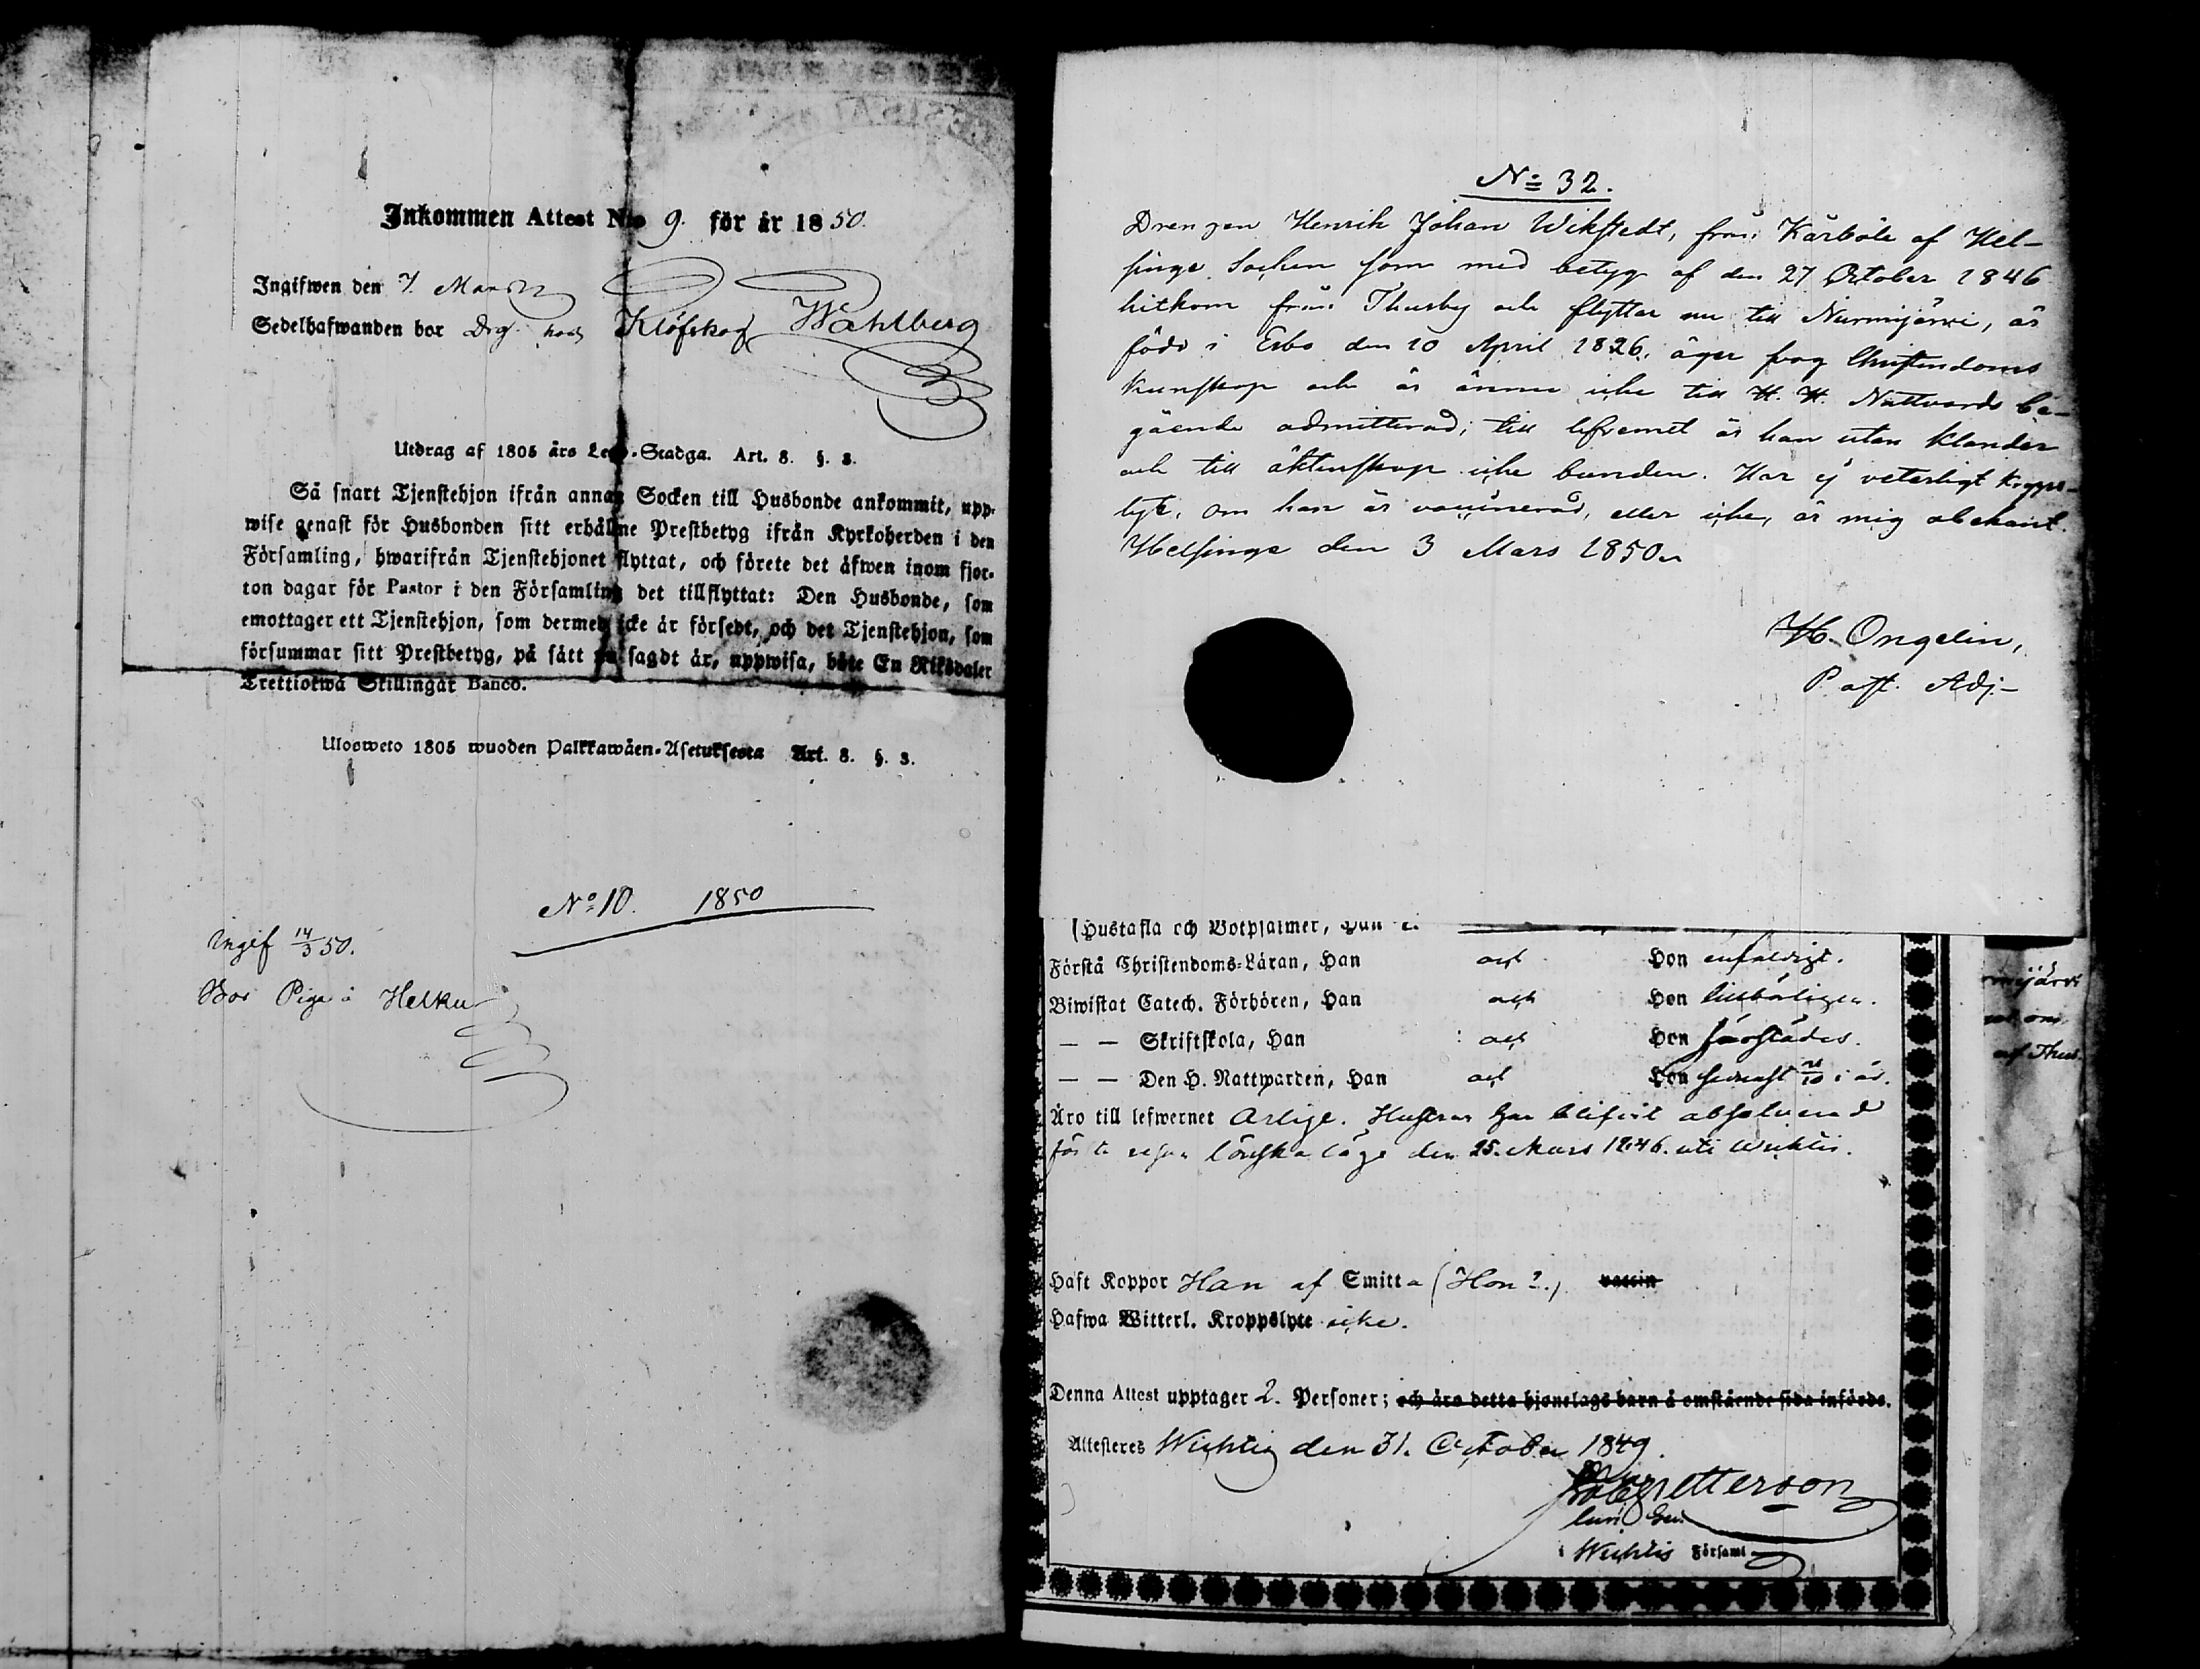 Inkommen Attest N:o 9. för år 1850.
Ingifwen den 7. Mars
Sedelhafwanden bor Drg hos Klöfskog Wahlberg
Utdrag af 1805 års Lego-Stadga. Art. 8. §. 3.
Så snart Tjenstehjon ifrån annan Socken till Husbonde ankommit, upp-
wise genast för Husbonden sitt erhållne Prestbetyg ifrån Kyrkoherden i den
Församling, hwarifrån Tjenstehjonet flyttat, och förete det äfwen inom fjor-
ton dagar för Pastor i den Församling det tillflyttat: Den Husbonde, som
emottager ett Tjenstehjon, som dermed icke är försedt, och det Tjenstehjon, som
försummar sitt Prestbetyg, på sätt nu sagdt är, uppwisa, böte En Riksdaler
Trettiotwå Skillingar Banco.
Ulosweto 1805 wuoden Palkkawäen-Asetuksesta Art. 8. §. 3.
No 10. 1850
Ingif 14/3 50.
Bor Piga å Helku
No 32.
Drengen Henrik Johan Wikstedt, från Kårböle af Hel-
singe Socken som med betyg af den 27 October 1846
hitkom från Thusby och flyttar nu till Nurmijärvi, är
född i Esbo den 10 April 1826, äger svag Christendoms
kunskap och är ännu icke till H. H. Nattvards be-
gående admitterad; till lefvernet är han utan klander
och till äktenskap icke bunden. Har ej veterligt kropps-
lyte, om han är vaccinerad, eller icke, är mig obekant.
Helsinge den 3 Mars 1850.
H. Ongelin,
Past. Adj.
(Hustafla och Botpsalmer, Han
Förstå Christendoms-Läran, Han och Hon enfaldigt.
Biwistat Catech. Förhören, Han och Hon tillbörligen.
— — Skriftskola, Han och Hon färstädes.
— — Den H. Nattwarden, Han och Hon senast i år.
Äro till lefwernet Ärlige. Hustrun har blifvit absolverad
för resan lönskaläge den 25. Mars 1846. uti Wichtis.
Haft Koppor Han af Smitta (Hon ?.) vaccin
Hafwa Witterl. Kroppslyte icke.
Denna Attest upptager 2. Personer; och äro detta hjonelags barn å omstående sida införde.
Attesteres Wichtis den 31. October 1849.
Petterson
i Wichtis Församl
rmijärvi
af Thus-